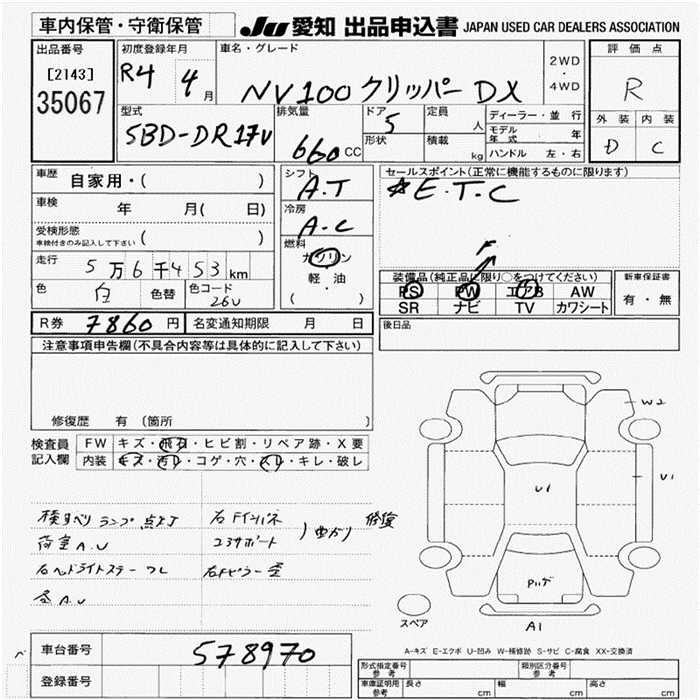 車内保管・守衛保管
JU 愛知 出品申込書 JAPAN USED CAR DEALERS ASSOCIATION
出品番号
[2143]
35067
初度登録年月
R4 4月
車名・グレード
NV100クリッパー DX
2WD
・
4WD
評価点
R
外装 内装
D C
型式
5BD-DR17V
排気量
660 CC
ドア
5
形状
定員
人
積載
kg
ディーラー・並行
モデル年式 年
ハンドル 左・右
車歴 自家用・( )
車検 年 月( 日)
受検形態
車検付きのみ記入して下さい ( )
走行 5万6千453km
色 白 色替 色コード 26U
シフト
A.T
冷房
A-C
燃料
ガソリン
軽・油
( )
セールスポイント(正常に機能するものに限ります)
☆E.T.C
F
装備品(純正品に限り○をつけてください)
PS PW エアB AW
SR ナビ TV カワシート
新車保証書
有・無
R券 7860円 名変通知期限 月 日
後日品
注意事項申告欄(不具合内容等は具体的に記入して下さい)
修復歴 有 (箇所 )
検査員記入欄
FW キズ・飛石・ヒビ割・リペア跡・X要
内装 キズ・汚レ・コゲ・穴・スレ・キレ・破レ
横スベリ ランプ点灯
荷室A.U
右ヘッドライトステー ズレ
右Fインパネ
コアサポート
曲がり 修復
W2
U1
U1
A1
スペア
A-キズ E-エクボ U-凹み W-補修跡 S-サビ C-腐食 XX-交換済
車台番号 578970
登録番号
形式指定番号 参考
類別区分番号 参考
車庫証明用 参考 長さ cm 幅 cm 高さ cm